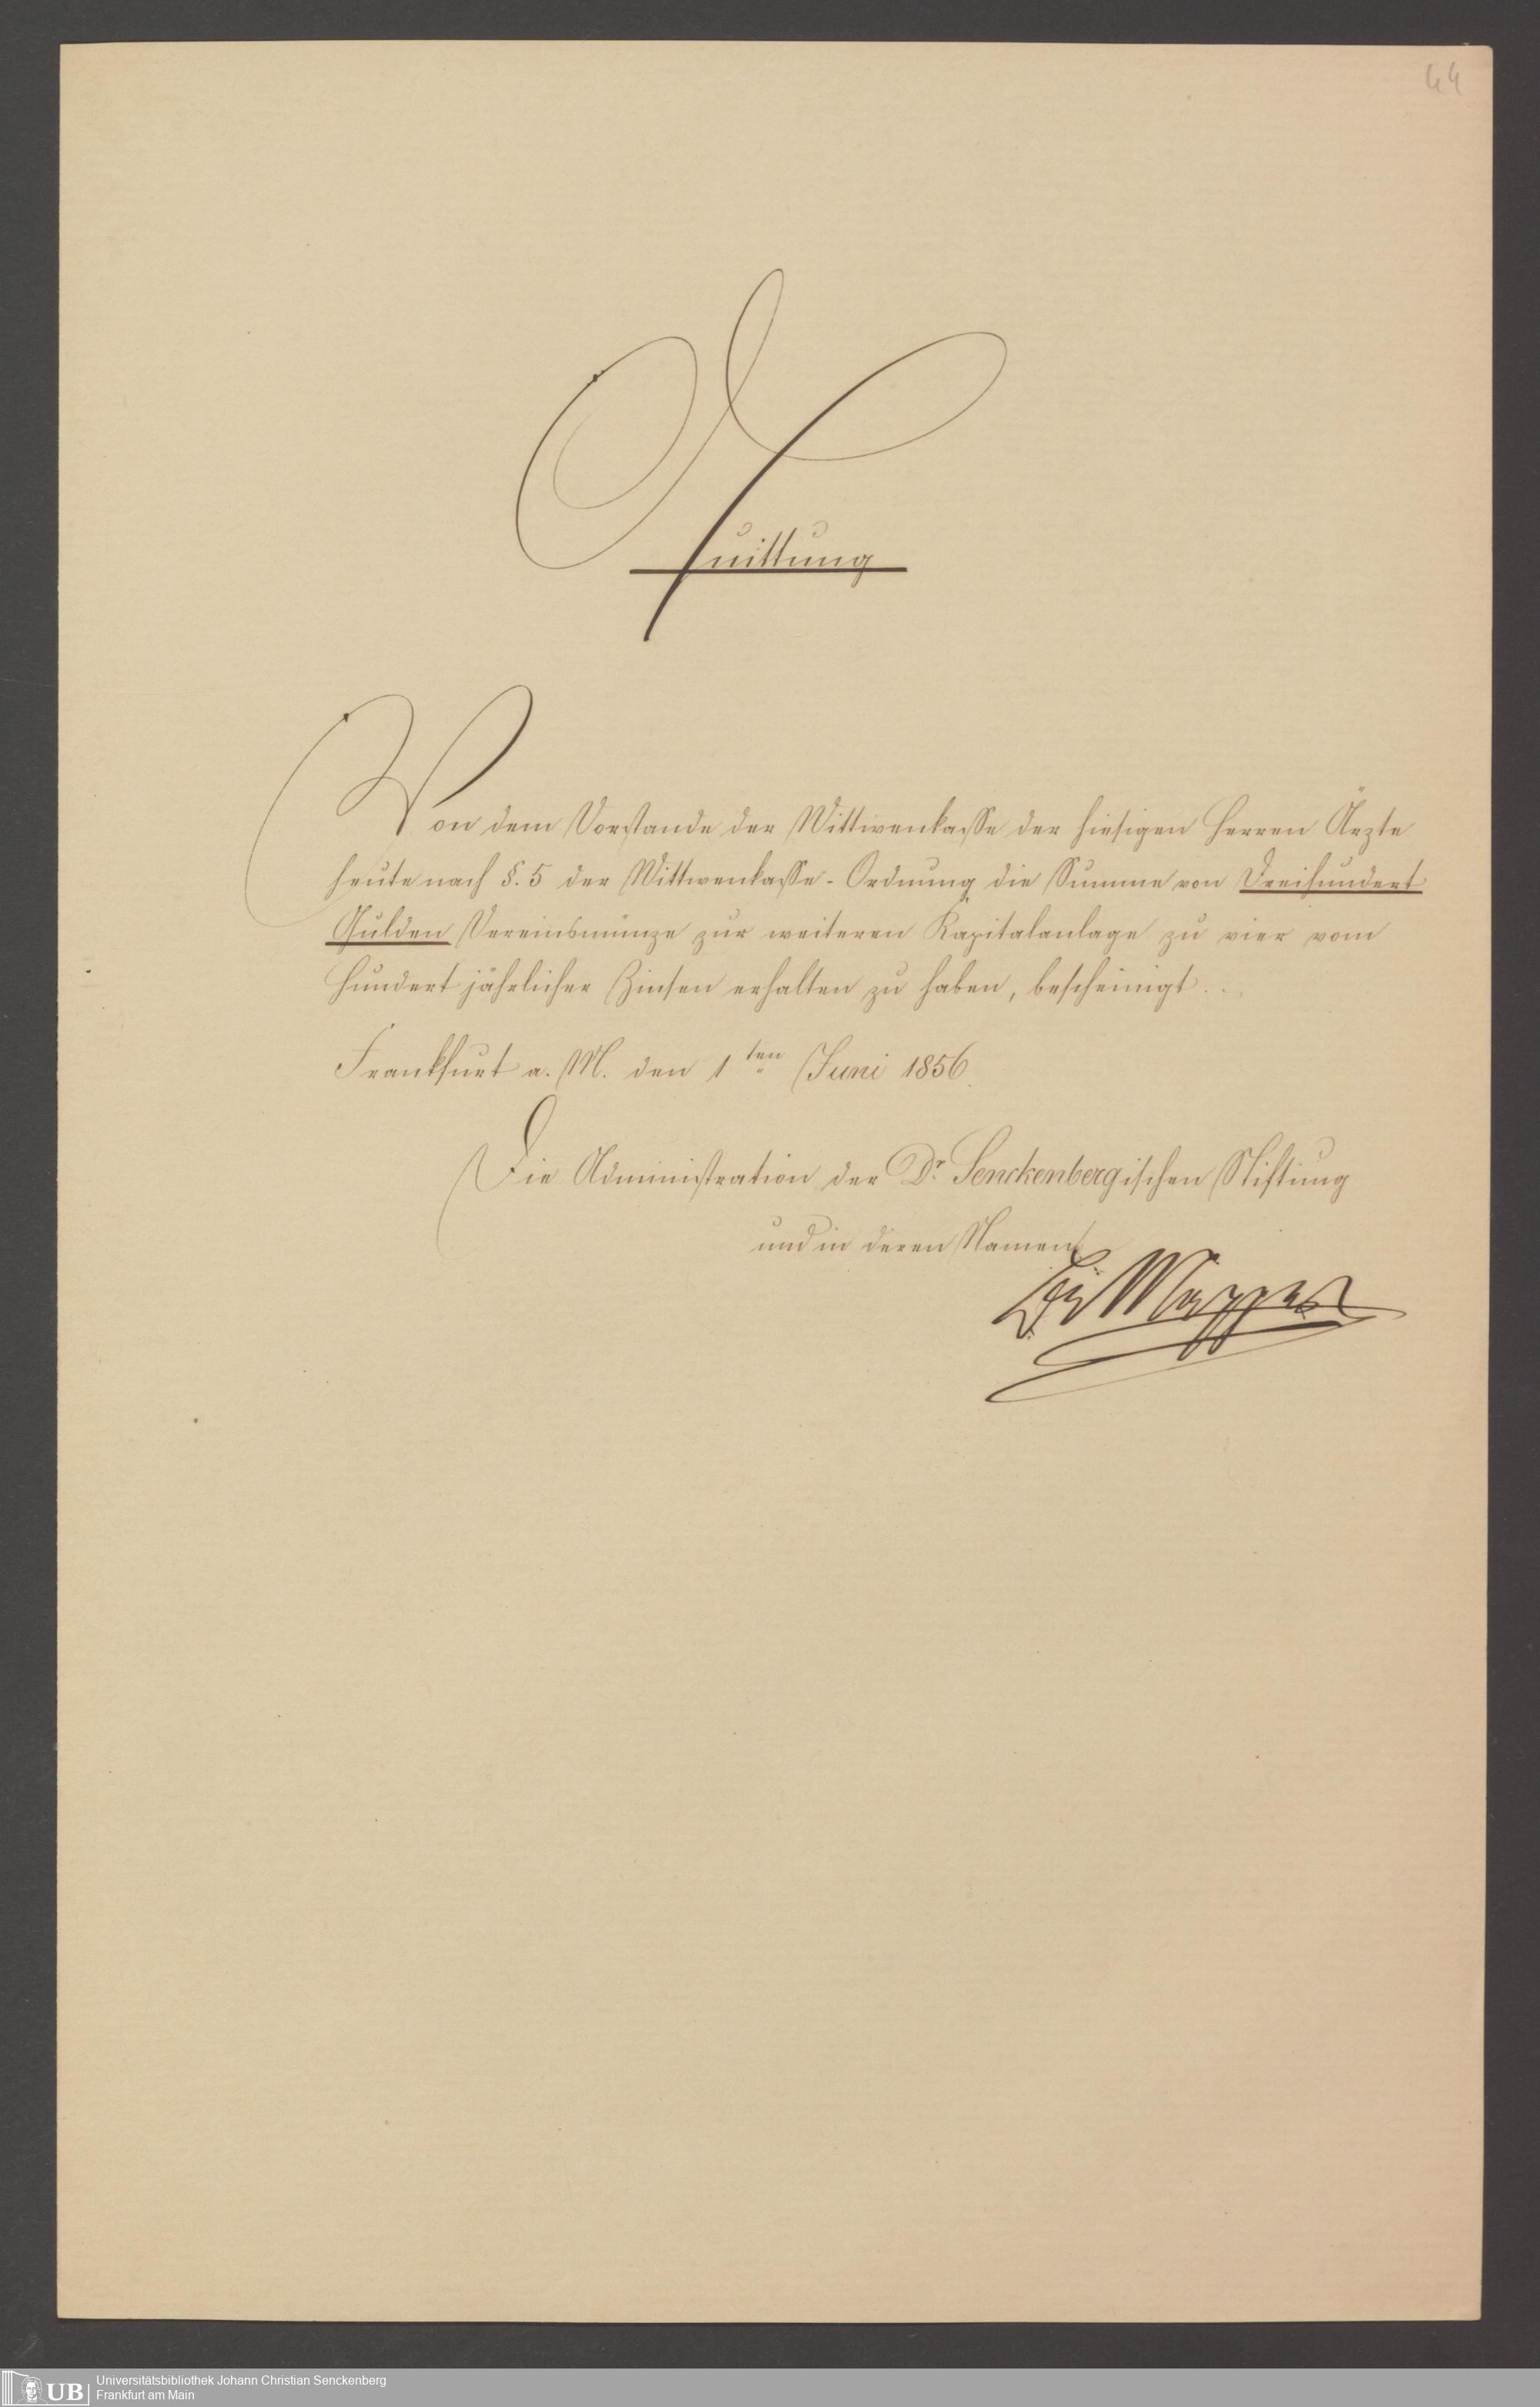 44
Quittung
Von dem Vorstande der Wittwenkasse der hiesigen Herren Ärzte
heute nach §. 5 der Wittwenkasse-Ordnung die Summe von Dreihundert
Gulden Vereinsmünze zur weiteren Kapitalanlage zu vier vom
Hundert jährlicher Zinsen erhalten zu haben, bescheinigt.
Frankfurt a. M. den 1ten Juni 1856.
Die Administration der Dr. Senckenbergischen Stiftung
und in deren Namen
Dr Mappes
UB
Universitätsbibliothek Johann Christian Senckenberg
Frankfurt am Main